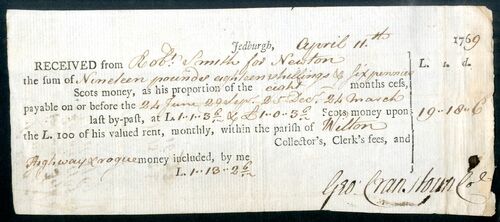 Jedburgh, April 11th 1769
RECEIVED from Robt. Smith for Newton
L. s. d.
the sum of Nineteen pounds eighteen shillings & Six pennies
Scots money, as his proportion of the eight months cess,
payable on or before the 24 June 29 Sept. 25 Decr. 24 March
last by-past, at L 1-1-3 & L 1-0-3 Scots money upon
19-18-6
the L. 100 of his valued rent, monthly, within the parish of Wilton
Collector's, Clerk's fees, and
Highway & rogue money included, by me
L. 1-13-2
Geo: Cranstoun Col.